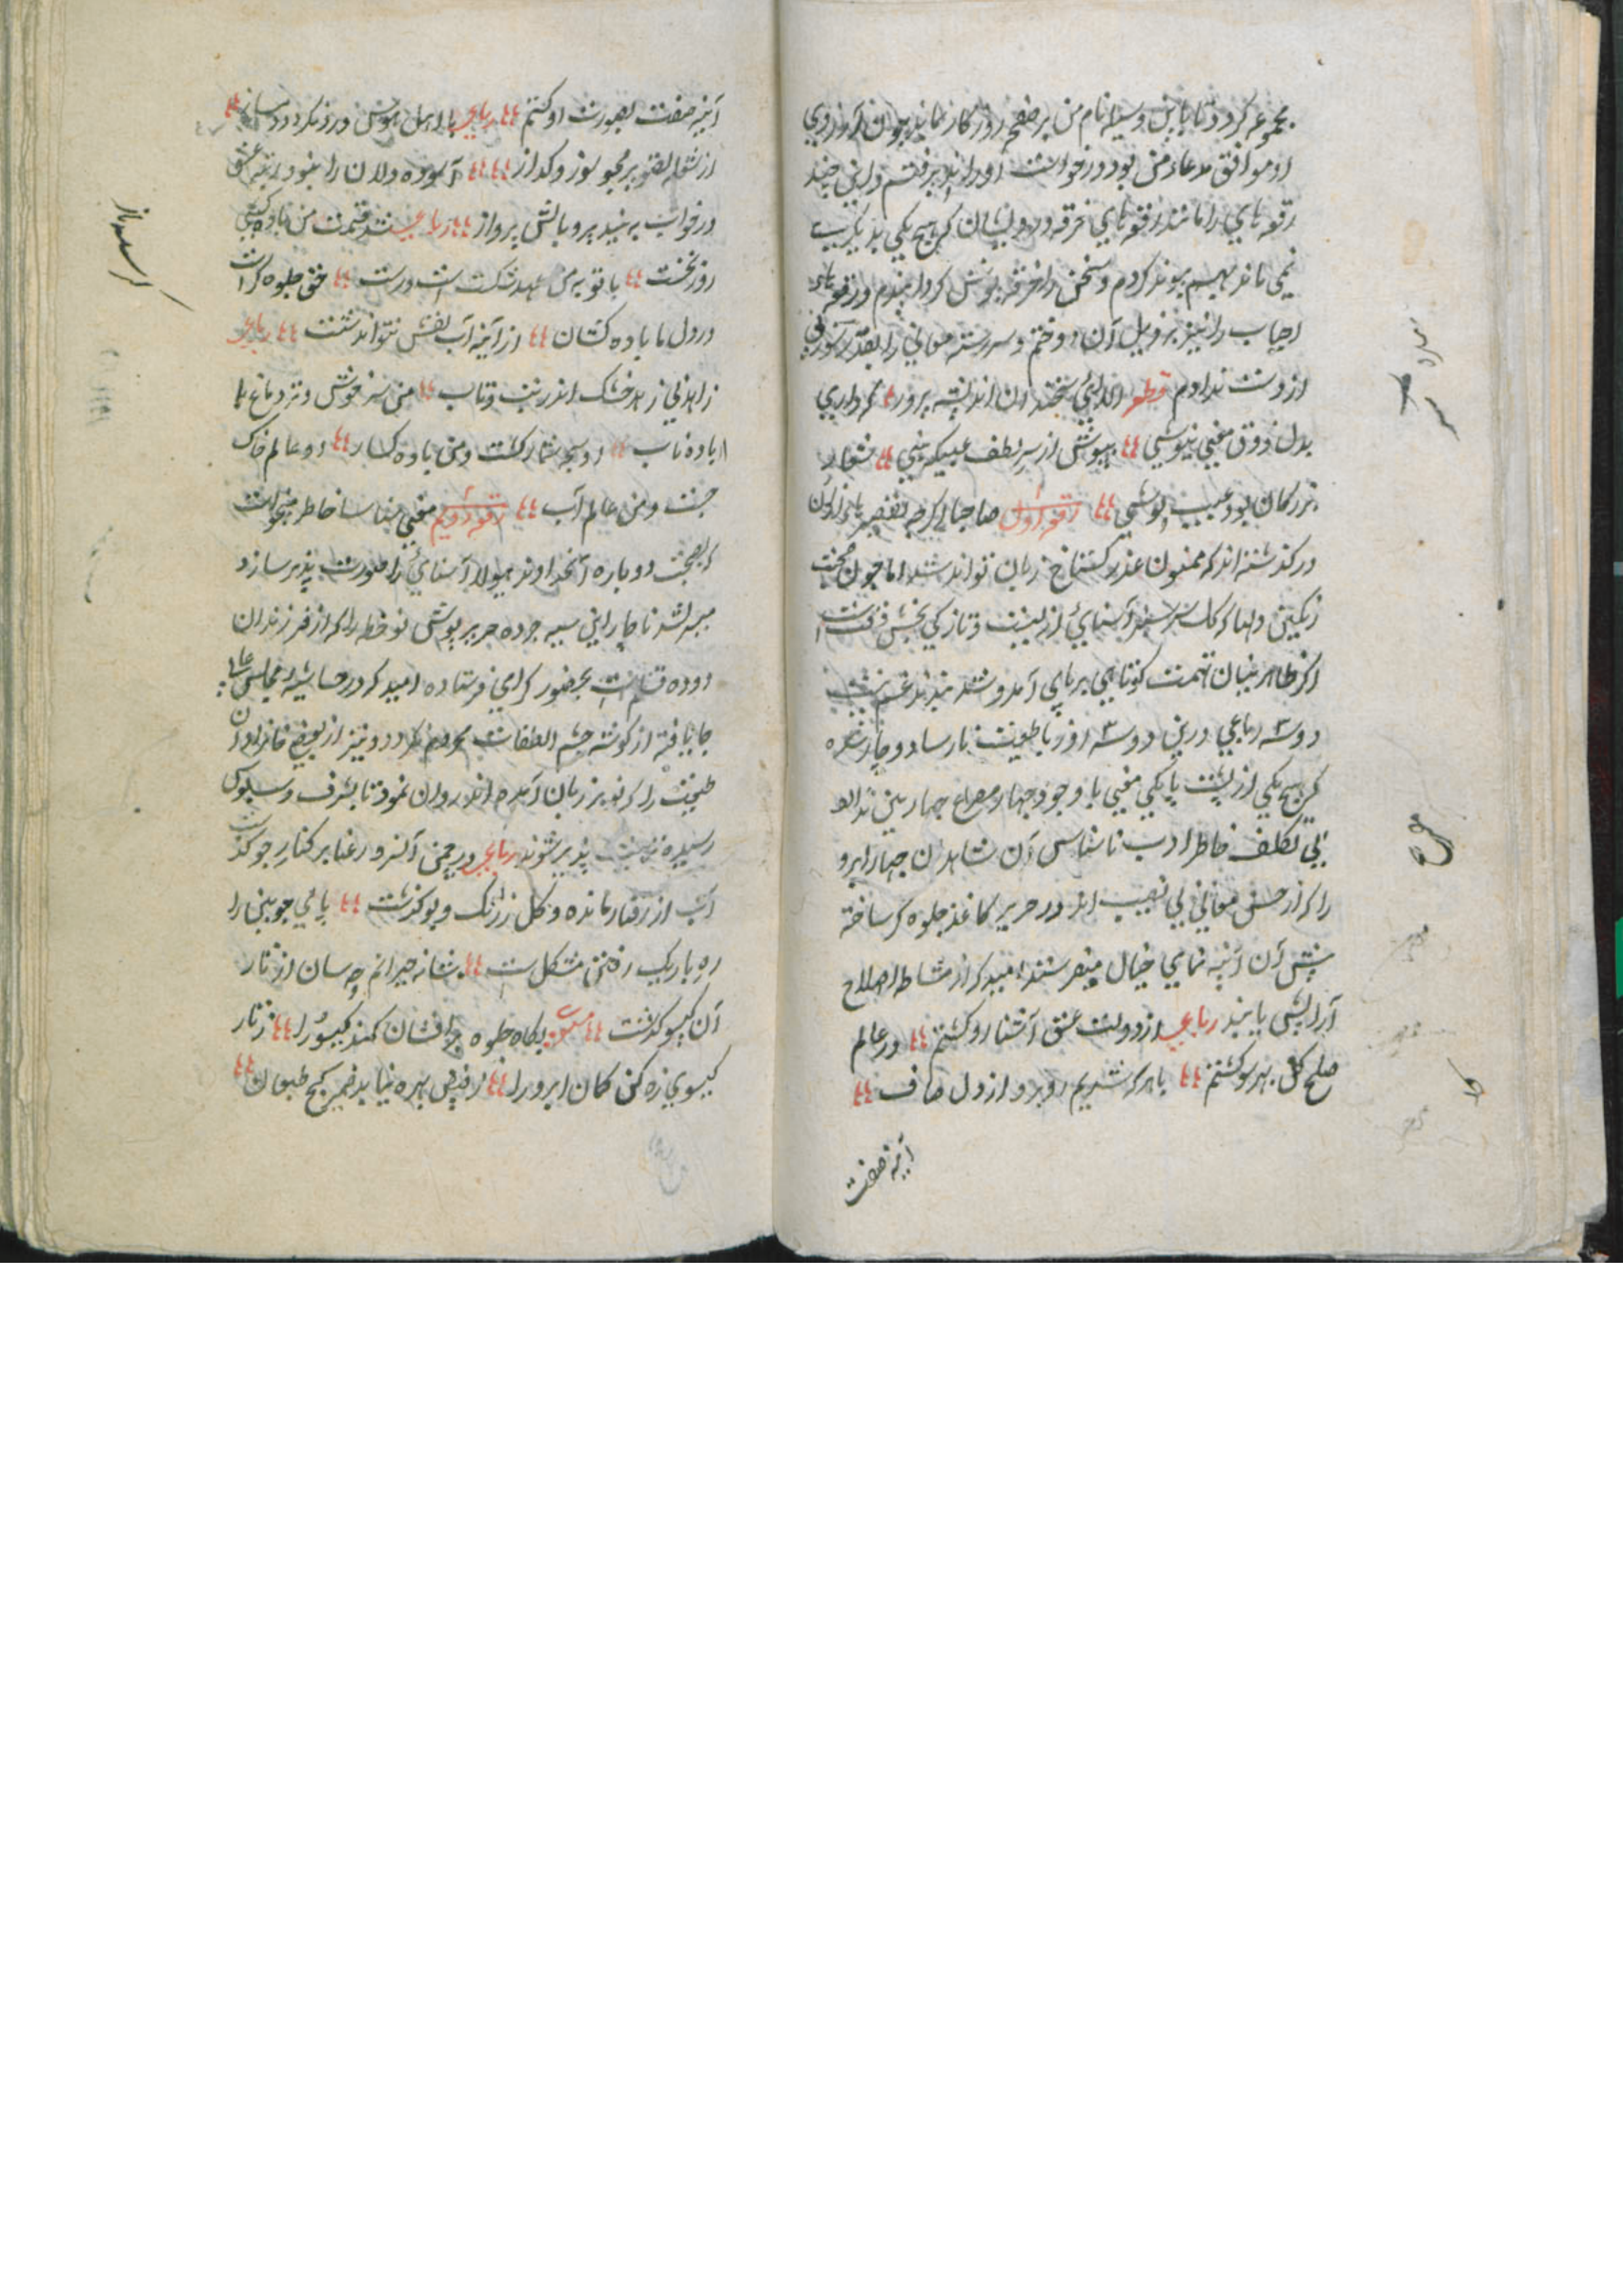 مجموعه کردد تا باین وسیله نام من بر صفحه روزکار نماند چون آرزوي
او موافق مدعاء من بود درخواست او را پذیرفتم و این چند
رقعه هاي را مانند رقعه هاي خرقه درویشان که هیچ یکي بدیکري
نمي ماند بهم پیوند کردم و سخن را خرقه پوش کردانیدم و رقعه هاي
احباب را نیز بر ذیل آن دوختم و سررشته معاني را بقدر سوزني
از دست ندادم قطعه الا اي سخندان اندیشه پرور که داري
بدل ذوق معني نیوشي بپوش از سر لطف عیبیکه بیني شعار
بزرکان بود عیب پوشي رقعه اول صاحبا اکرچه تقصیر
در کذشته اند که ممنون عذر کستاخ زبان تواند شد اما چون محبت
رنکین ادا که کل سر سبد آشنائي از لیت و تازکي بخش
اکر ظاهر بینان تهمت کوتاهي بر پاي آمد و شد بندند غم نیست
دو سه رباعي درین دو سه روز با طبیعت نارسا دوچار شده
که هیچ یکي از پشت پا یکي معني با وجود چهار مصراع چهار بین ندارد
بي تکلف خاطر ادب ناشناس آن شاهدان چهار ابرو
را که از حسن معاني بي نصیب اند در حریر کاغذ جلوه کر ساخته
پیش آن آئینه نماي خیال میفرستد امید که از مشاطه اصلاح
آرایش یابند رباعي از دولت عشق آشنا رو کشتم در عالم
صلح کل بهر سو کشتم با هر که شدیم روبرو از دل صاف
آینه صفت
آینه صفت بصورت او کشتم رباعي با اهل هوس درد نکردد دمساز
از شعله تصویر مجو سوز و کداز آسوده دلان را نبود رتبه عشق
در خواب نه بیند پر و بالش پرواز رباعي شد قسمت من باده کشي
روز نخست با توبه من عهد شکست است درست حق جلوه کر است
در دل ما باده کشان از آینه آب نقش نتواند شست رباعي
زاهد ني زهد خشک اندر تب و تاب من سرخوش و تردماغ با
باده ناب او سبحه شمار کشت و من باده کسار او عالم خاک
جست و من عالم آب رقعه دویم معني شناسا خاطر میخواست
که بصحبت دوباره آنخداوند هیولاء آشنائي را صورت پذیر سازد
میسر نشد ناچار این سیه جرده حریر پوش نو خط را که از فرزندان
دوده قلم است بحضور کرامي فرستاده امید که در حاشیه مجالس عالي
جا یافته از کوشه چشم التفات محروم نکردد و نیز از بعضي خانزادان
طبیعت را که نو بر زبان آمده اند روان نمود تا بشرف دستبوس
رسیده تربیت پذیر شوند رباعي در چمن آنسرو رعنا بر کنار جو کذشت
آب از رفتار مانده و کل ز رنک و بو کذشت پاي چوبین را
ره باریک رفتن مشکل است شانه حیرانم چه سان از تار
آن کیسو کذشت بکاه جلوه پر افشان کند کیسو را ز تار
کیسوي زه کن کمان ابرو را ز فیض بهره نیابد ضمیر کج طبعان